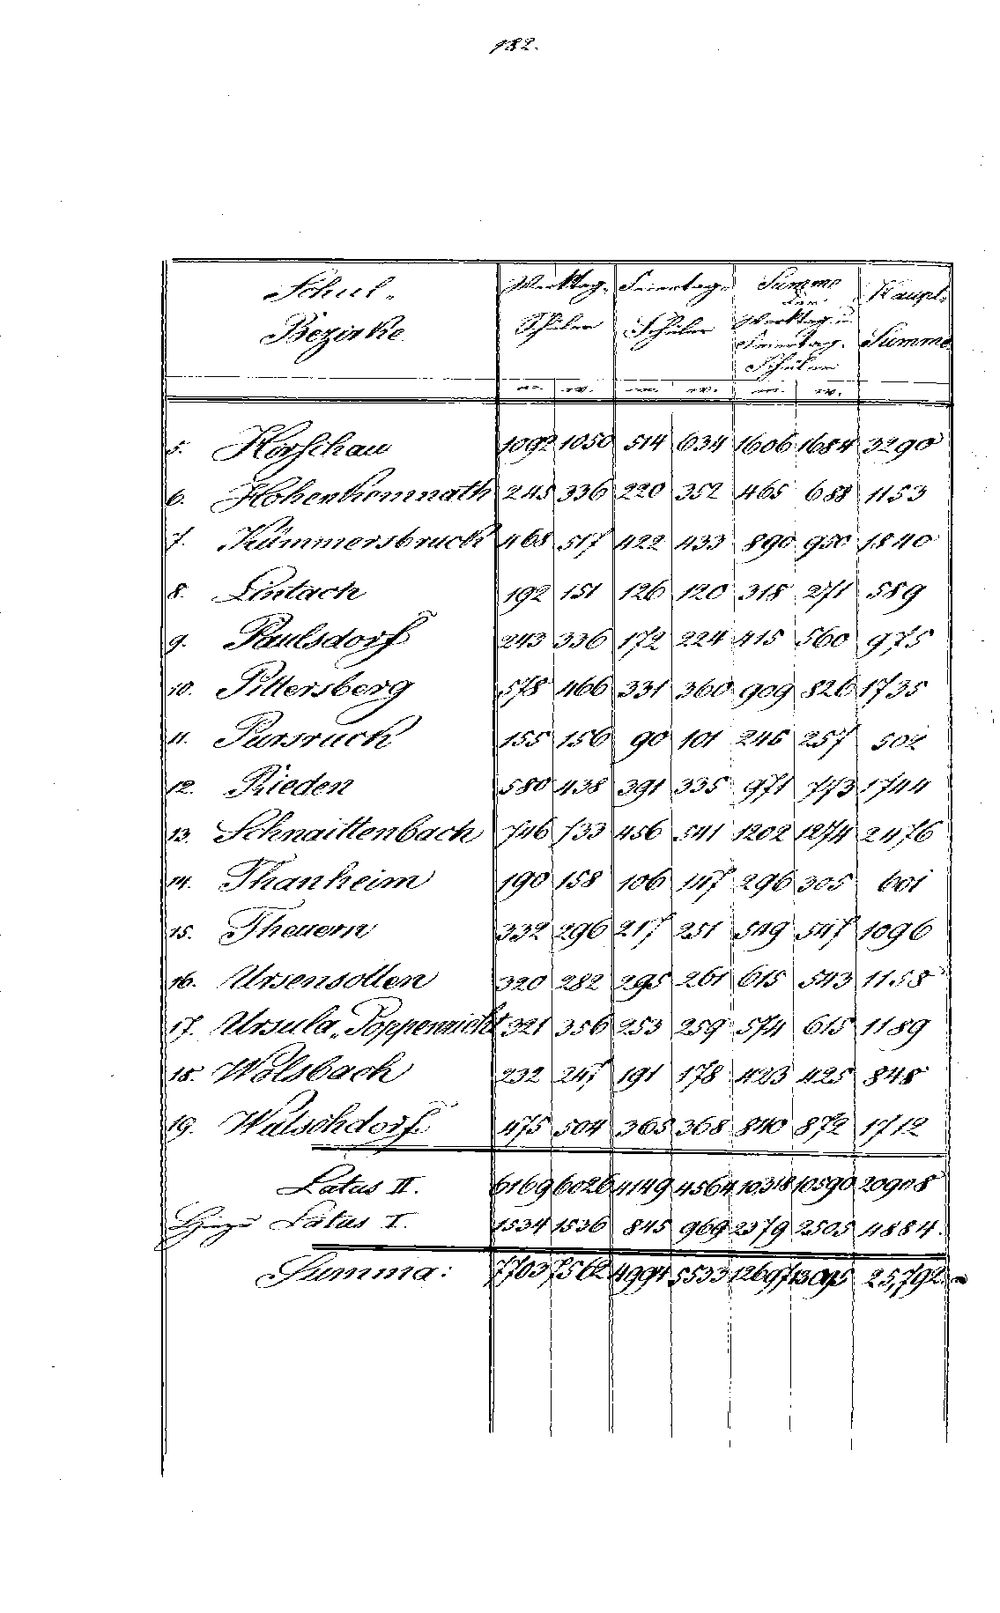 182.
Schul-
Bezirke
Werktag- Schüler
Feiertag- Schüler
Summe der Werktag u. Feiertag- Schüler
Haupt- Summe
m. w. m. w. m. w.
5. Hirschau 1092 1050 514 634 1606 1684 3290
6. Hohenkemnath 245 336 220 352 465 688 1153
7. Kümmersbruck 468 517 422 433 890 950 1840
8. Lintach 192 151 126 120 318 271 589
9. Paulsdorf 243 336 172 224 415 560 975
10. Pittersberg 578 466 331 360 909 826 1735
11. Pursruck 155 156 90 101 245 257 502
12. Rieden 580 438 391 335 971 773 1744
13. Schnaittenbach 746 733 456 541 1202 1274 2476
14. Thanheim 190 158 106 147 296 305 601
15. Theuern 332 296 217 251 549 547 1096
16. Ursensollen 320 282 295 261 615 543 1158
17. Ursula-Poppenricht 321 356 253 259 574 615 1189
18. Wolsbach 232 247 191 178 423 425 848
19. Wutschdorf 475 504 365 368 840 872 1712
Latus II. 6169 6026 4149 4564 10318 10590 20908
Hiezu Latus I. 1534 1536 845 969 2379 2505 4884.
Summa: 7703 7562 4994 5533 12697 13095 25,792.